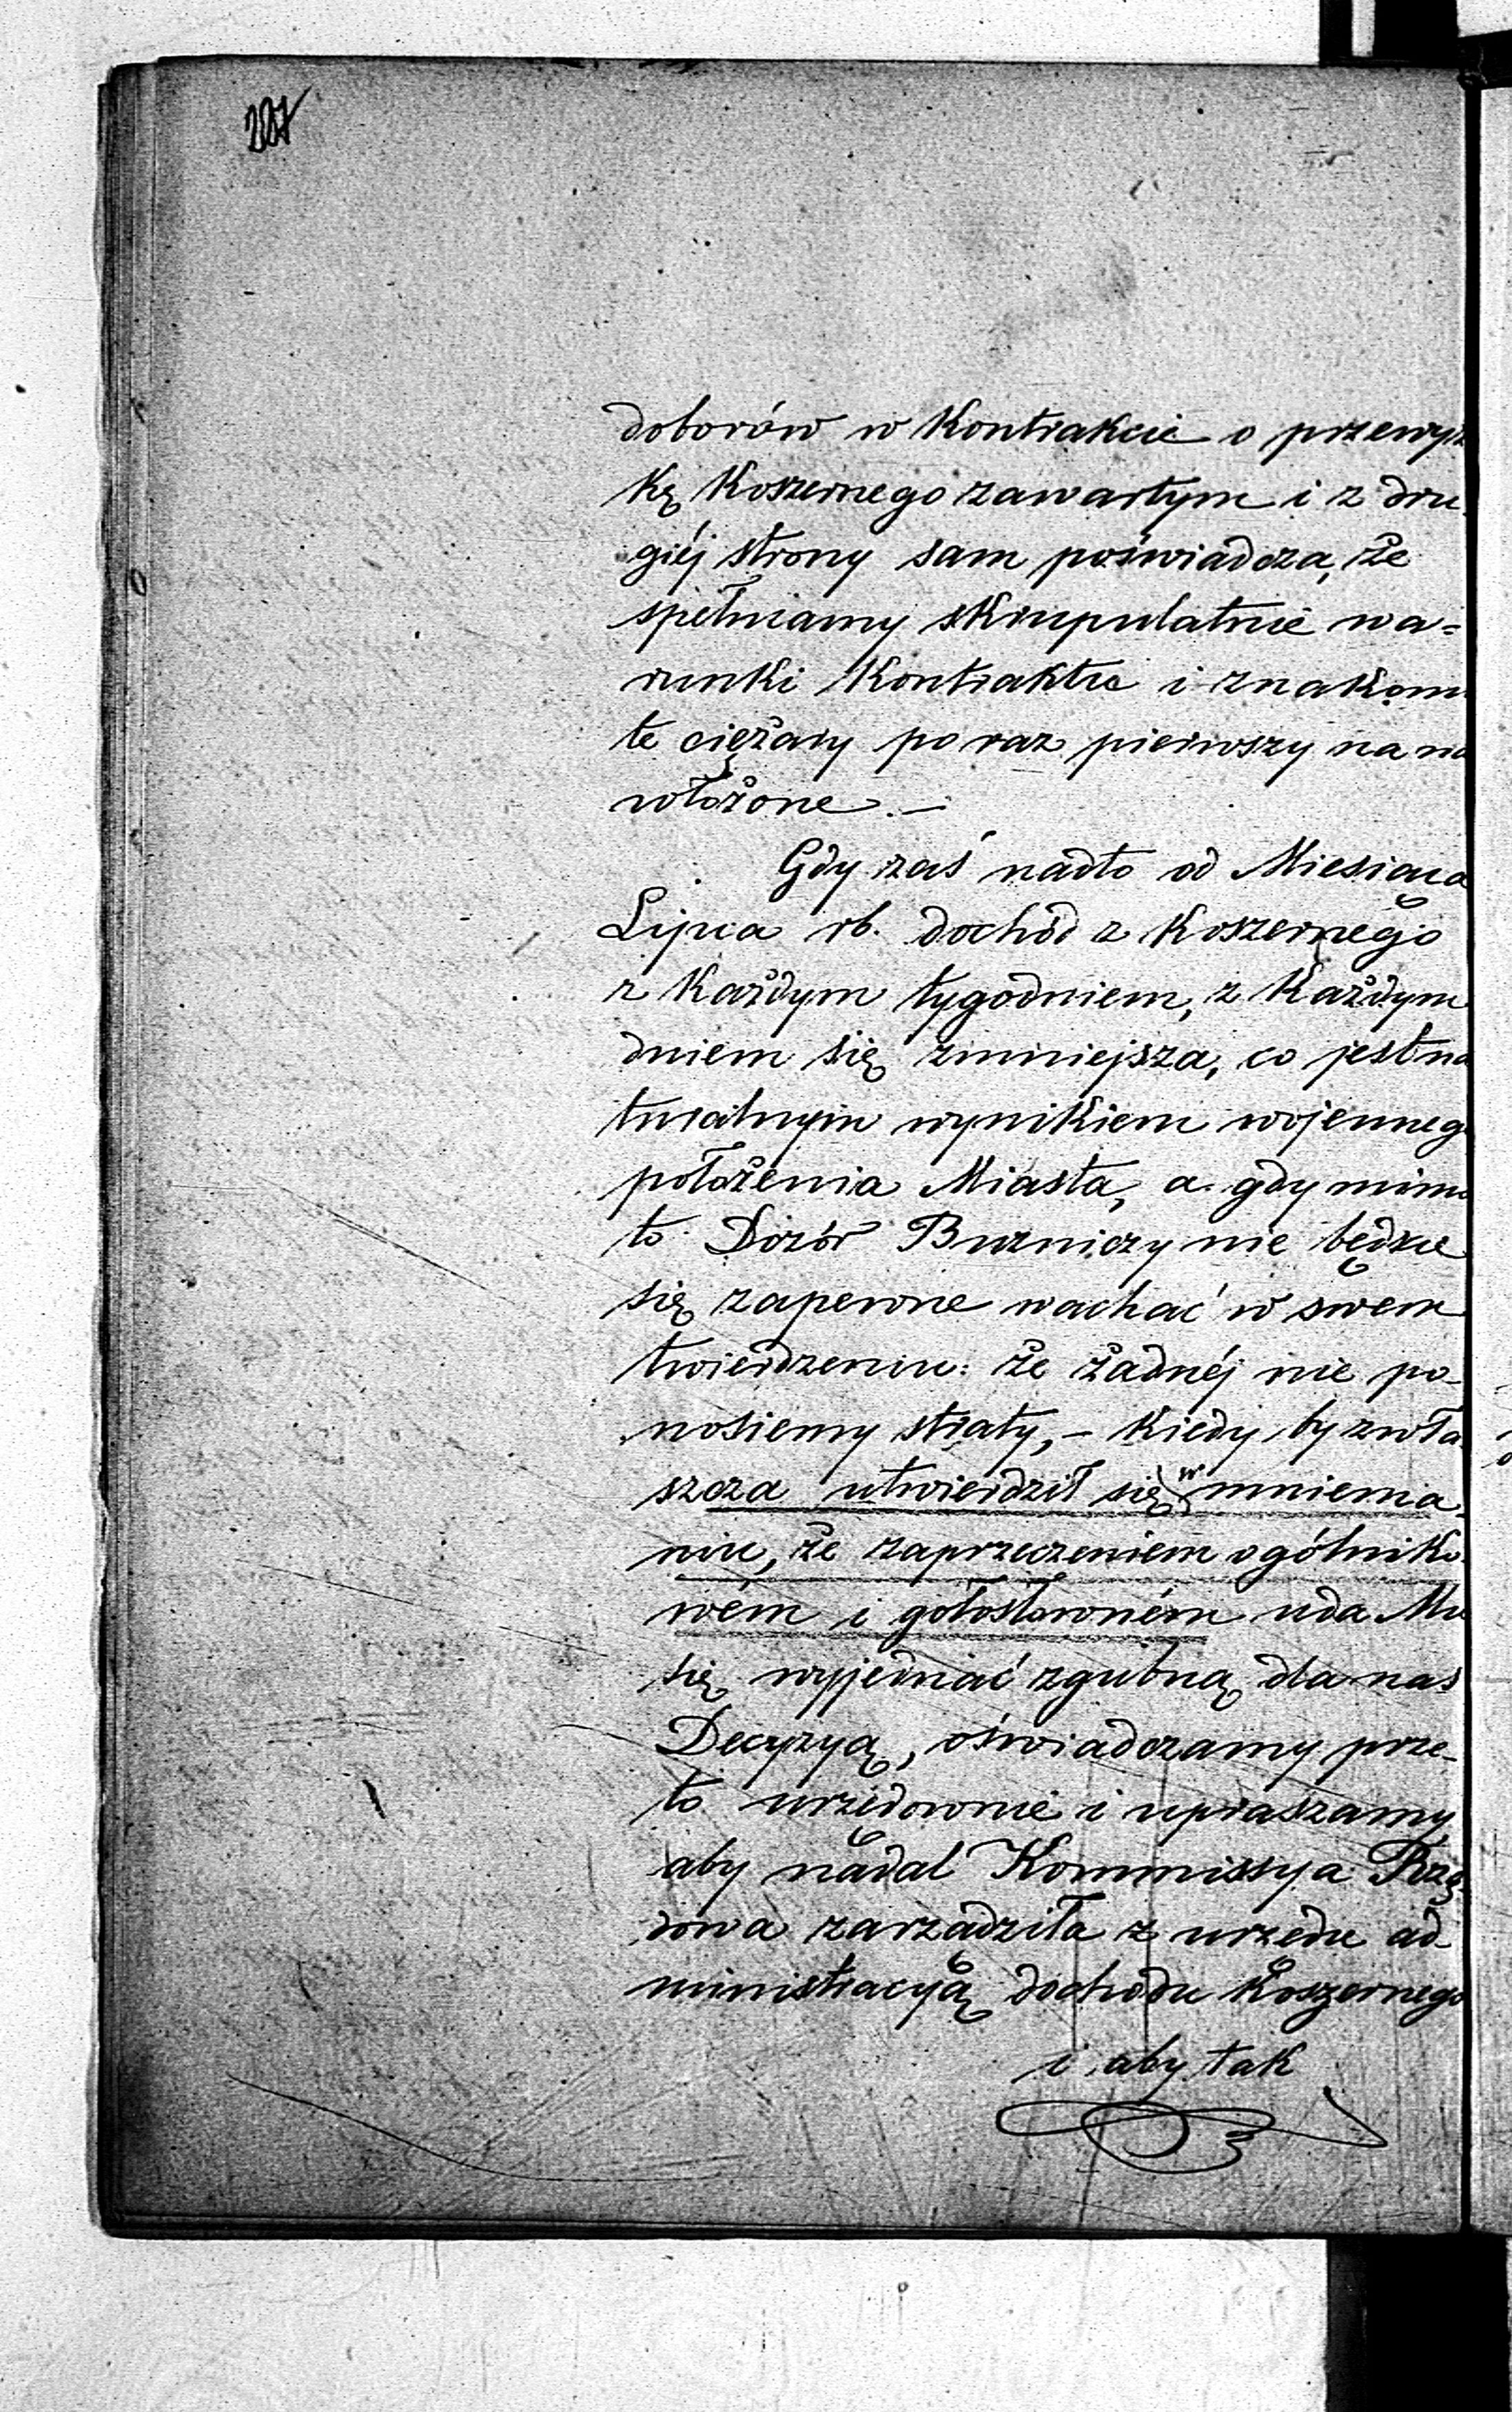 207
doborów w Kontrakcie o przewyż
kę Koszernego zawartym i z dru
giéj strony sam poświadcza, że
spełniamy skrupulatnie wa=
runki Kontraktu i znakomi
te ciężary po raz pierwszy na na
włożone. –
Gdy zaś nadto od Miesiąca
Lipca rb. dochód z Koszernego
z Każdym tygodniem, z Każdym
dniem się zmniejsza, co jest na
turalnym wynikiem wojenneg
położenia Miasta, a gdy mimo
to Dozór Bużniczy nie będzie
się zapewne wachać w swem
twierdzeniu: że żadnéj nie po-
nosiemy straty, – Kiedy by zwła
szcza utwierdził się w mniema
niu, że zaprzeczeniem ogólniko
wém i gołosłowném uda Mu
się wyjednać zgubną dla nas
Decyzyą, oświadczamy prze-
to urzędownie i upraszamy
aby nadal Kommissya Rzą
dowa zarządziła z urzędu ad-
ministracyą dochodu Koszernego
i aby tak